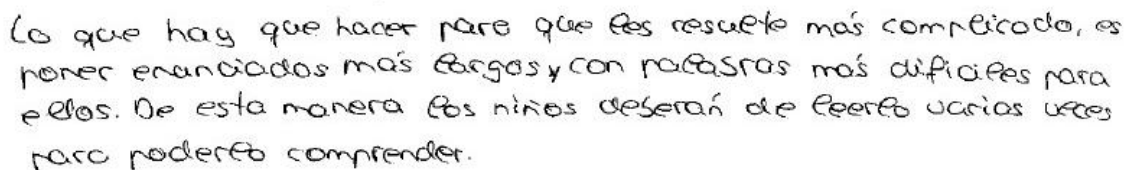 Lo que hay que hacer para que les resulte más complicado, es
poner enunciados más largos y con palabras más difíciles para
ellos. De esta manera los niños deberán de leerlo varias veces
para poderlo comprender.